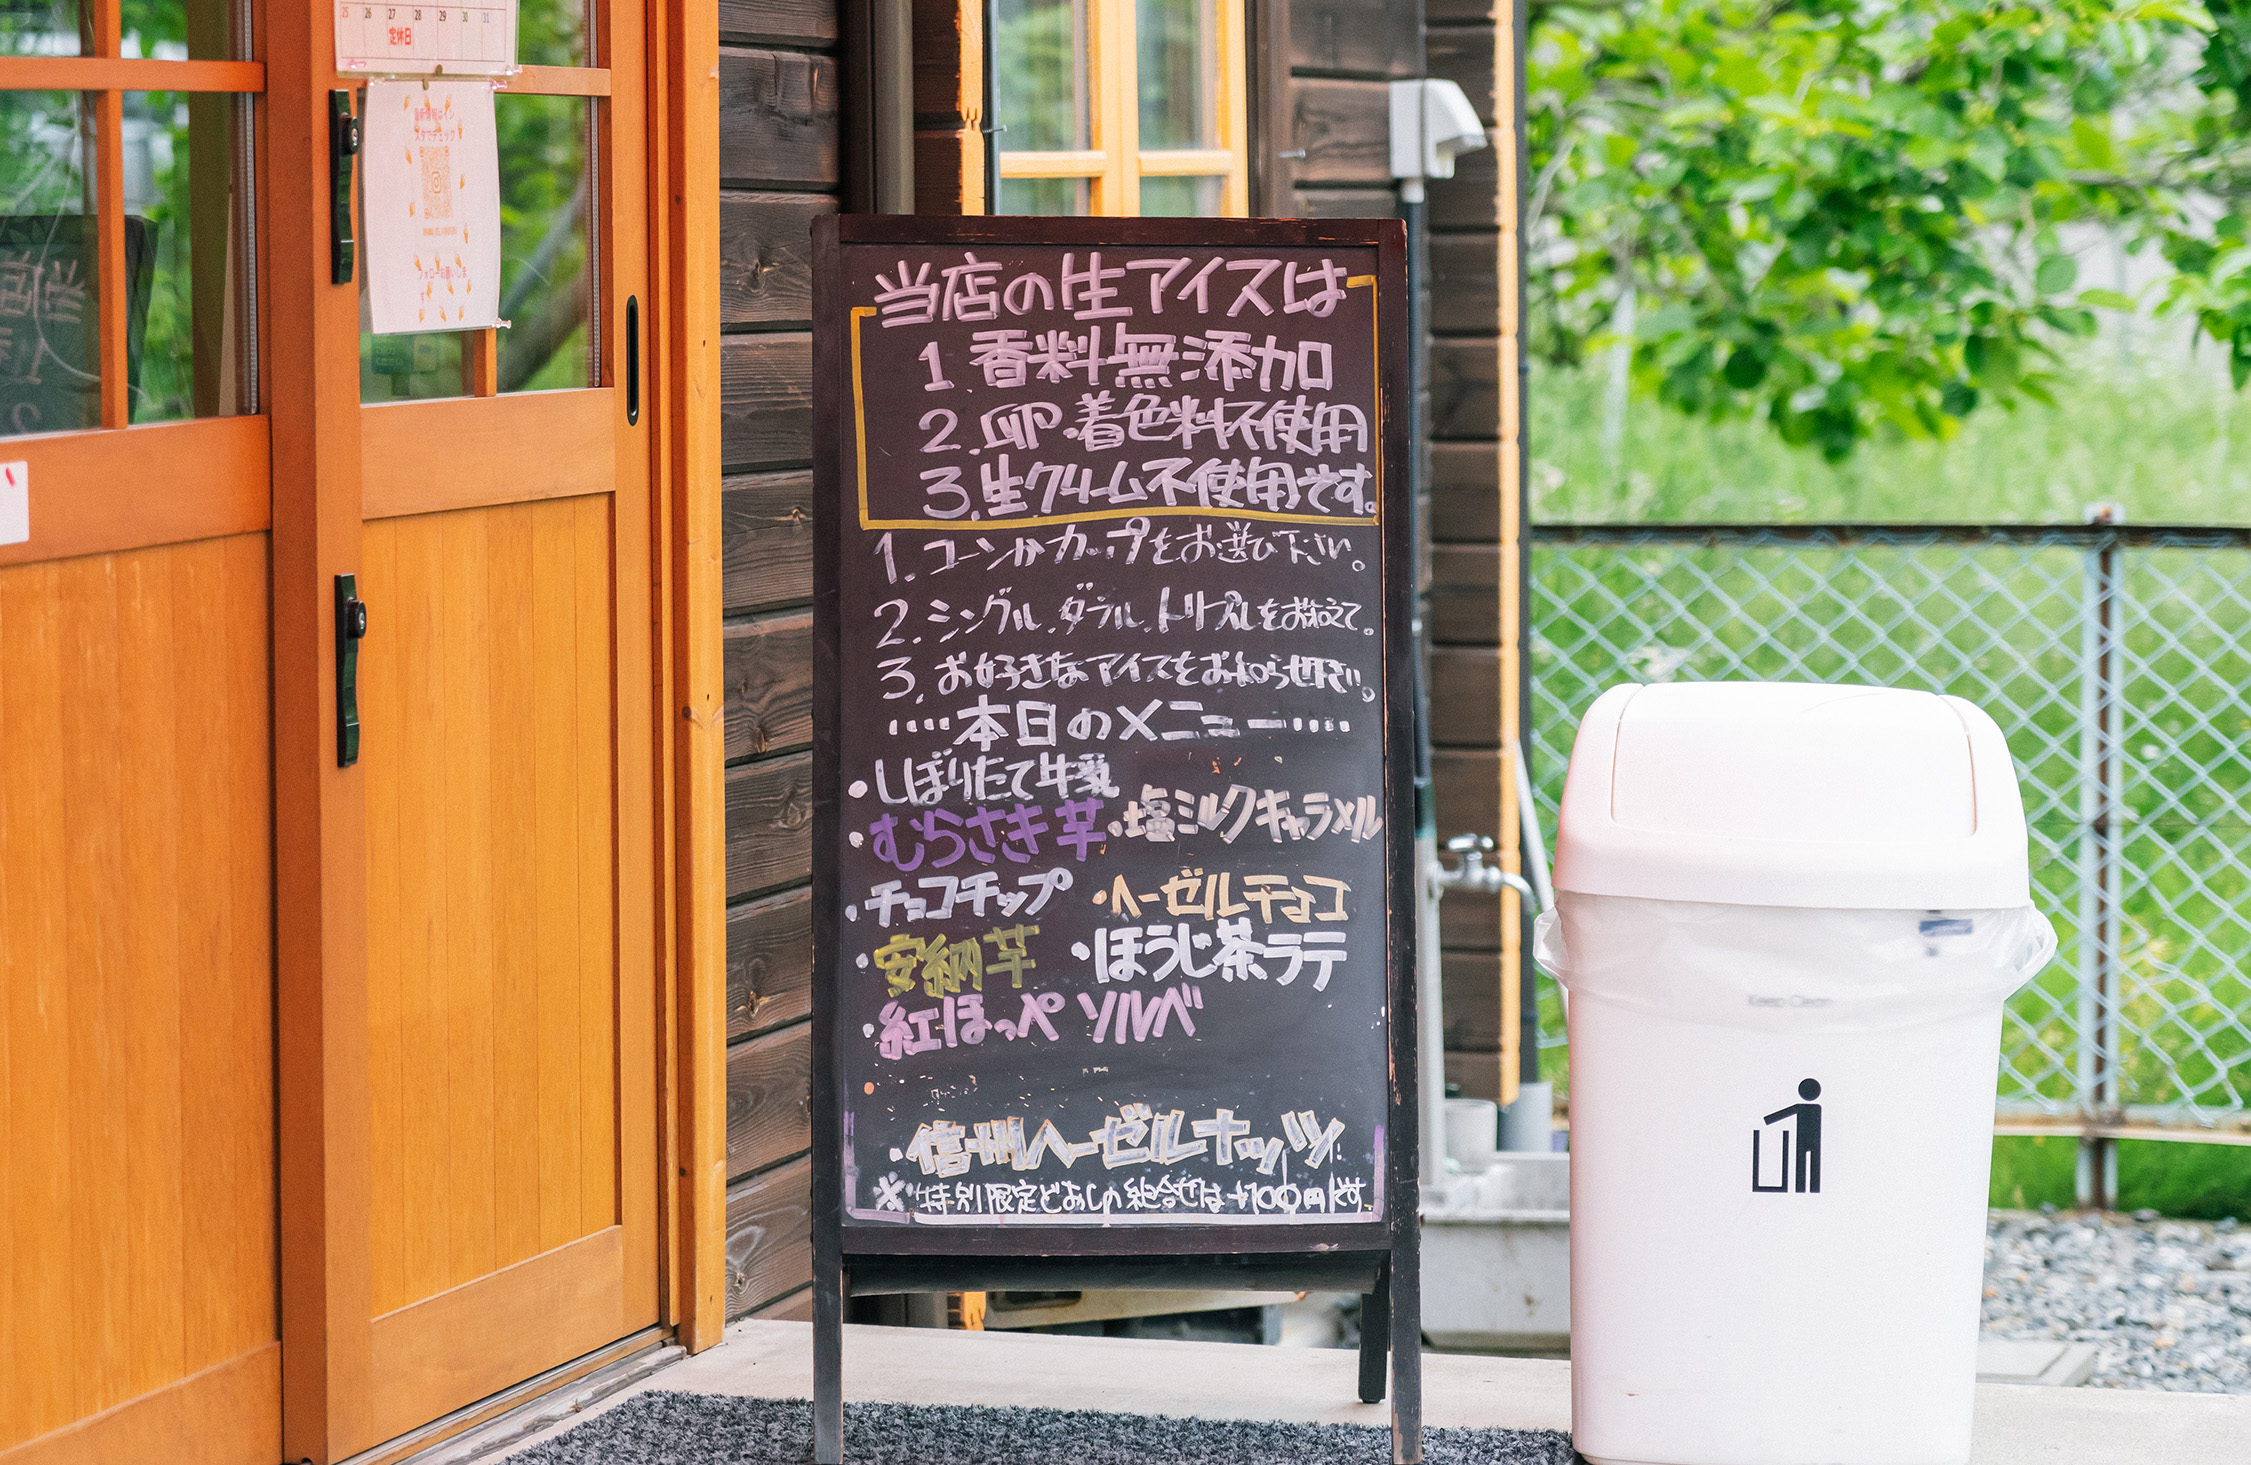 25 26 27 28 29 30 31
定休日
最新情報はイン
スタでチェック
フォローお願いしま
す
当店の生アイスは
1.香料無添加
2.卵・着色料不使用
3.生クリーム不使用です。
1.コーンかカップをお選び下さい。
2.シングル、ダブル、トリプルをお伝えて。
3.お好きなアイスをお知らせ下さい。
‥‥本日のメニュー‥‥
・しぼりたて牛乳
・むらさき芋 ・塩ミルクキャラメル
・チョコチップ ・ヘーゼルチョコ
・安納芋 ・ほうじ茶ラテ
・紅ほっぺソルベ
・信州ヘーゼルナッツ
※特別限定どおしの組合せは+100円です。
Keep Clean